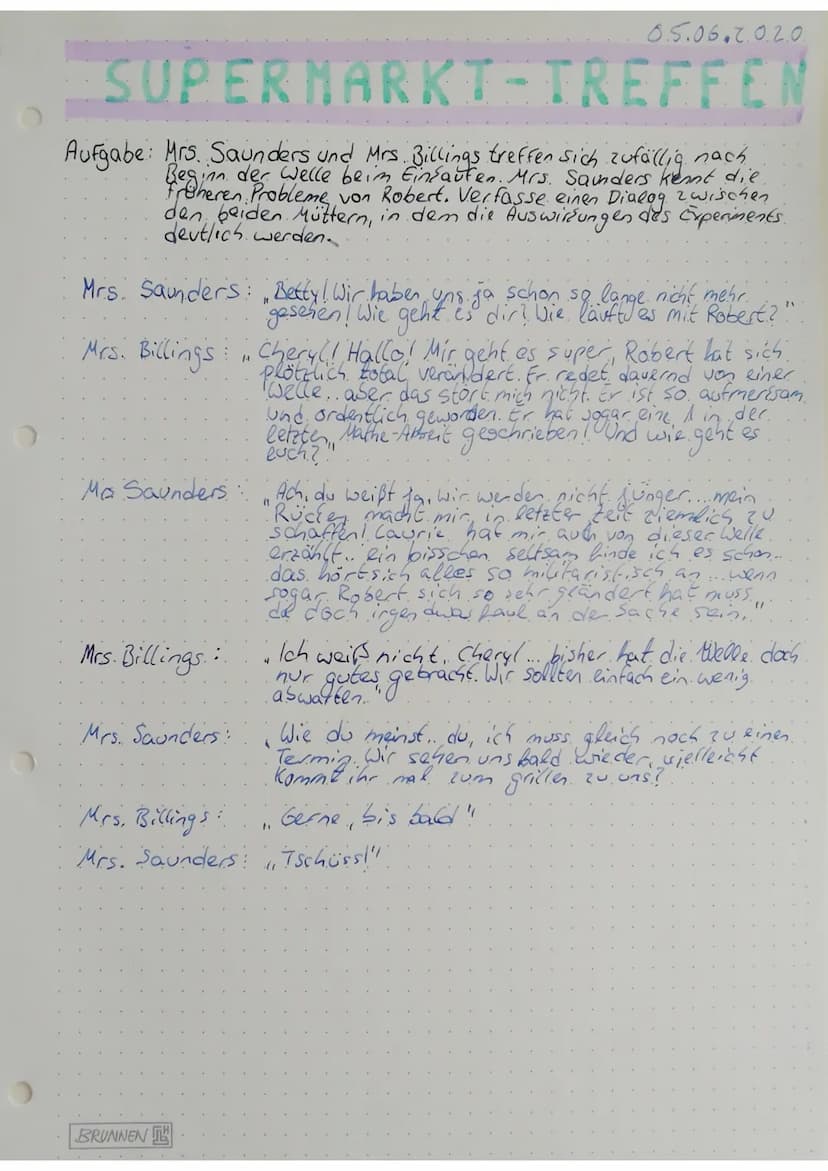 05.06.2020
SUPERMARKT-TREFFEN
Aufgabe: Mrs. Saunders und Mrs. Billings treffen sich zufällig nach
Beginn der Welle beim Einkaufen. Mrs. Saunders kennt die
früheren Probleme von Robert. Verfasse einen Dialog zwischen
den beiden Müttern, in dem die Auswirkungen des Experiments
deutlich werden.
Mrs. Saunders: „Betty! Wir haben uns ja schon so lange nicht mehr
gesehen! Wie geht es dir? Wie läuft es mit Robert?"
Mrs. Billings: „Cheryl! Hallo! Mir geht es super, Robert hat sich
plötzlich total verändert. Er redet dauernd von einer
Welle.. aber das stört mich nicht. Er ist so aufmerksam
und ordentlich geworden. Er hat sogar eine 1 in der
letzten Mathe-Arbeit geschrieben! Und wie geht es
euch?"
Mrs Saunders: „Ach, du weißt ja, wir werden nicht jünger... mein
Rücken macht mir in letzter Zeit ziemlich zu
schaffen! Laurie hat mir auch von dieser Welle
erzählt.. ein bisschen seltsam finde ich es schon..
das hört sich alles so militaristisch an... wenn
sogar Robert sich so sehr geändert hat muss
da doch irgendwas faul an der Sache sein."
Mrs. Billings: „Ich weiß nicht, Cheryl... bisher hat die Welle doch
nur gutes gebracht. Wir sollten einfach ein wenig
abwarten."
Mrs. Saunders: „Wie du meinst.. du, ich muss gleich noch zu einen
Termin. Wir sehen uns bald wieder, vielleicht
kommt ihr mal zum grillen zu uns?
Mrs. Billings: „Gerne, bis bald"
Mrs. Saunders: „Tschüss!"
BRUNNEN